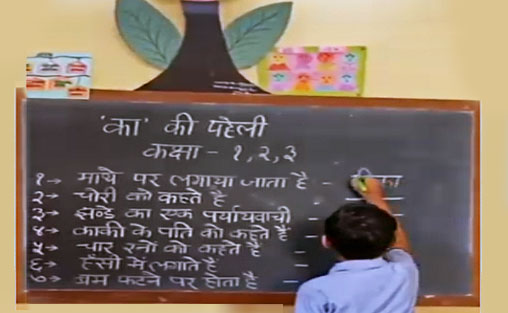 'का' की पहेली
कक्षा - १,२,३
१→ माथे पर लगाया जाता है - टीका
२→ चोरी को कहते है -
३→ झन्डे का एक पर्यायवाची -
४→ काकी के पति को कहते है -
५→ चार रनों को कहते है -
६→ हँसी में लगाते है -
७→ बम फटने पर होता है -